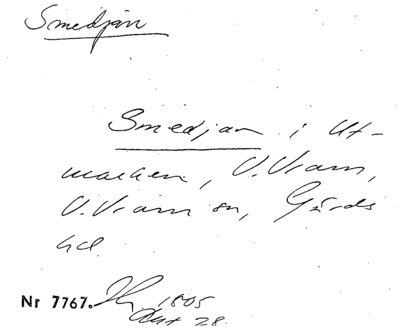 Smedjan
Smedjan i Ut-
marken, V. Vram,
V. Vram sn, Gärds
hd
Nr 7767. 1805
Akt 28.